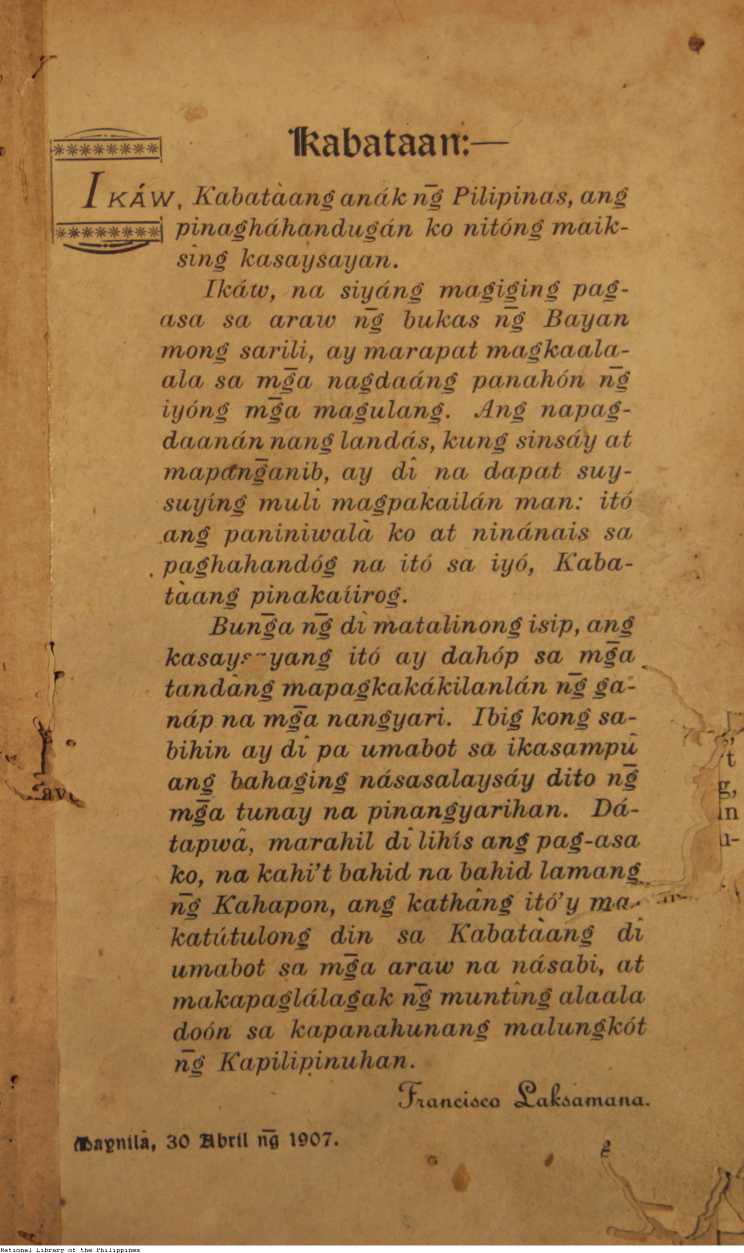 Kabataan:—
IKÁW, Kabatàang anák n͠g Pilipinas, ang
pinagháhandugán ko nitóng maik-
sing kasaysayan.
Ikáw, na siyáng magiging pag-
asa sa araw n͠g bukas n͠g Bayan
mong sarili, ay marapat magkaala-
ala sa mg̃a nagdaáng panahón n͠g
iyóng mg̃a magulang. Ang napag-
daanán nang landás, kung sinsáy at
mapang̃anib, ay dî na dapat suy-
suyíng mulî magpakailán man: itó
ang paniniwalà ko at ninánais sa
paghahandóg na itó sa iyó, Kaba-
tàang pinakaíirog.
Bung̃a n͠g dî matalinong isip, ang
yang itó ay dahóp sa mg̃a
tandàng mapagkakákilanlán n͠g ga-
náp na mg̃a nangyari. Ibig kong sa-
bihin ay dî pa umabot sa ikasampû
ang bahaging násasalaysáy dito n͠g
mg̃a tunay na pinangyarihan. Dá-
tapwâ, marahil dî lihís ang pag-asa
ko, na kahi't bahid na bahid lamang
n͠g Kahapon, ang kathâng itó'y ma-
katútulong din sa Kabatàang dî
umabot sa mg̃a araw na násabi, at
makapaglálagak n͠g muntîng alaala
doón sa kapanahunang malungkót
n͠g Kapilipinuhan.
Francisco Laksamana.
Maynilà, 30 Abril n͠g 1907.
't
g,
in
u-
National Library of the Philippines